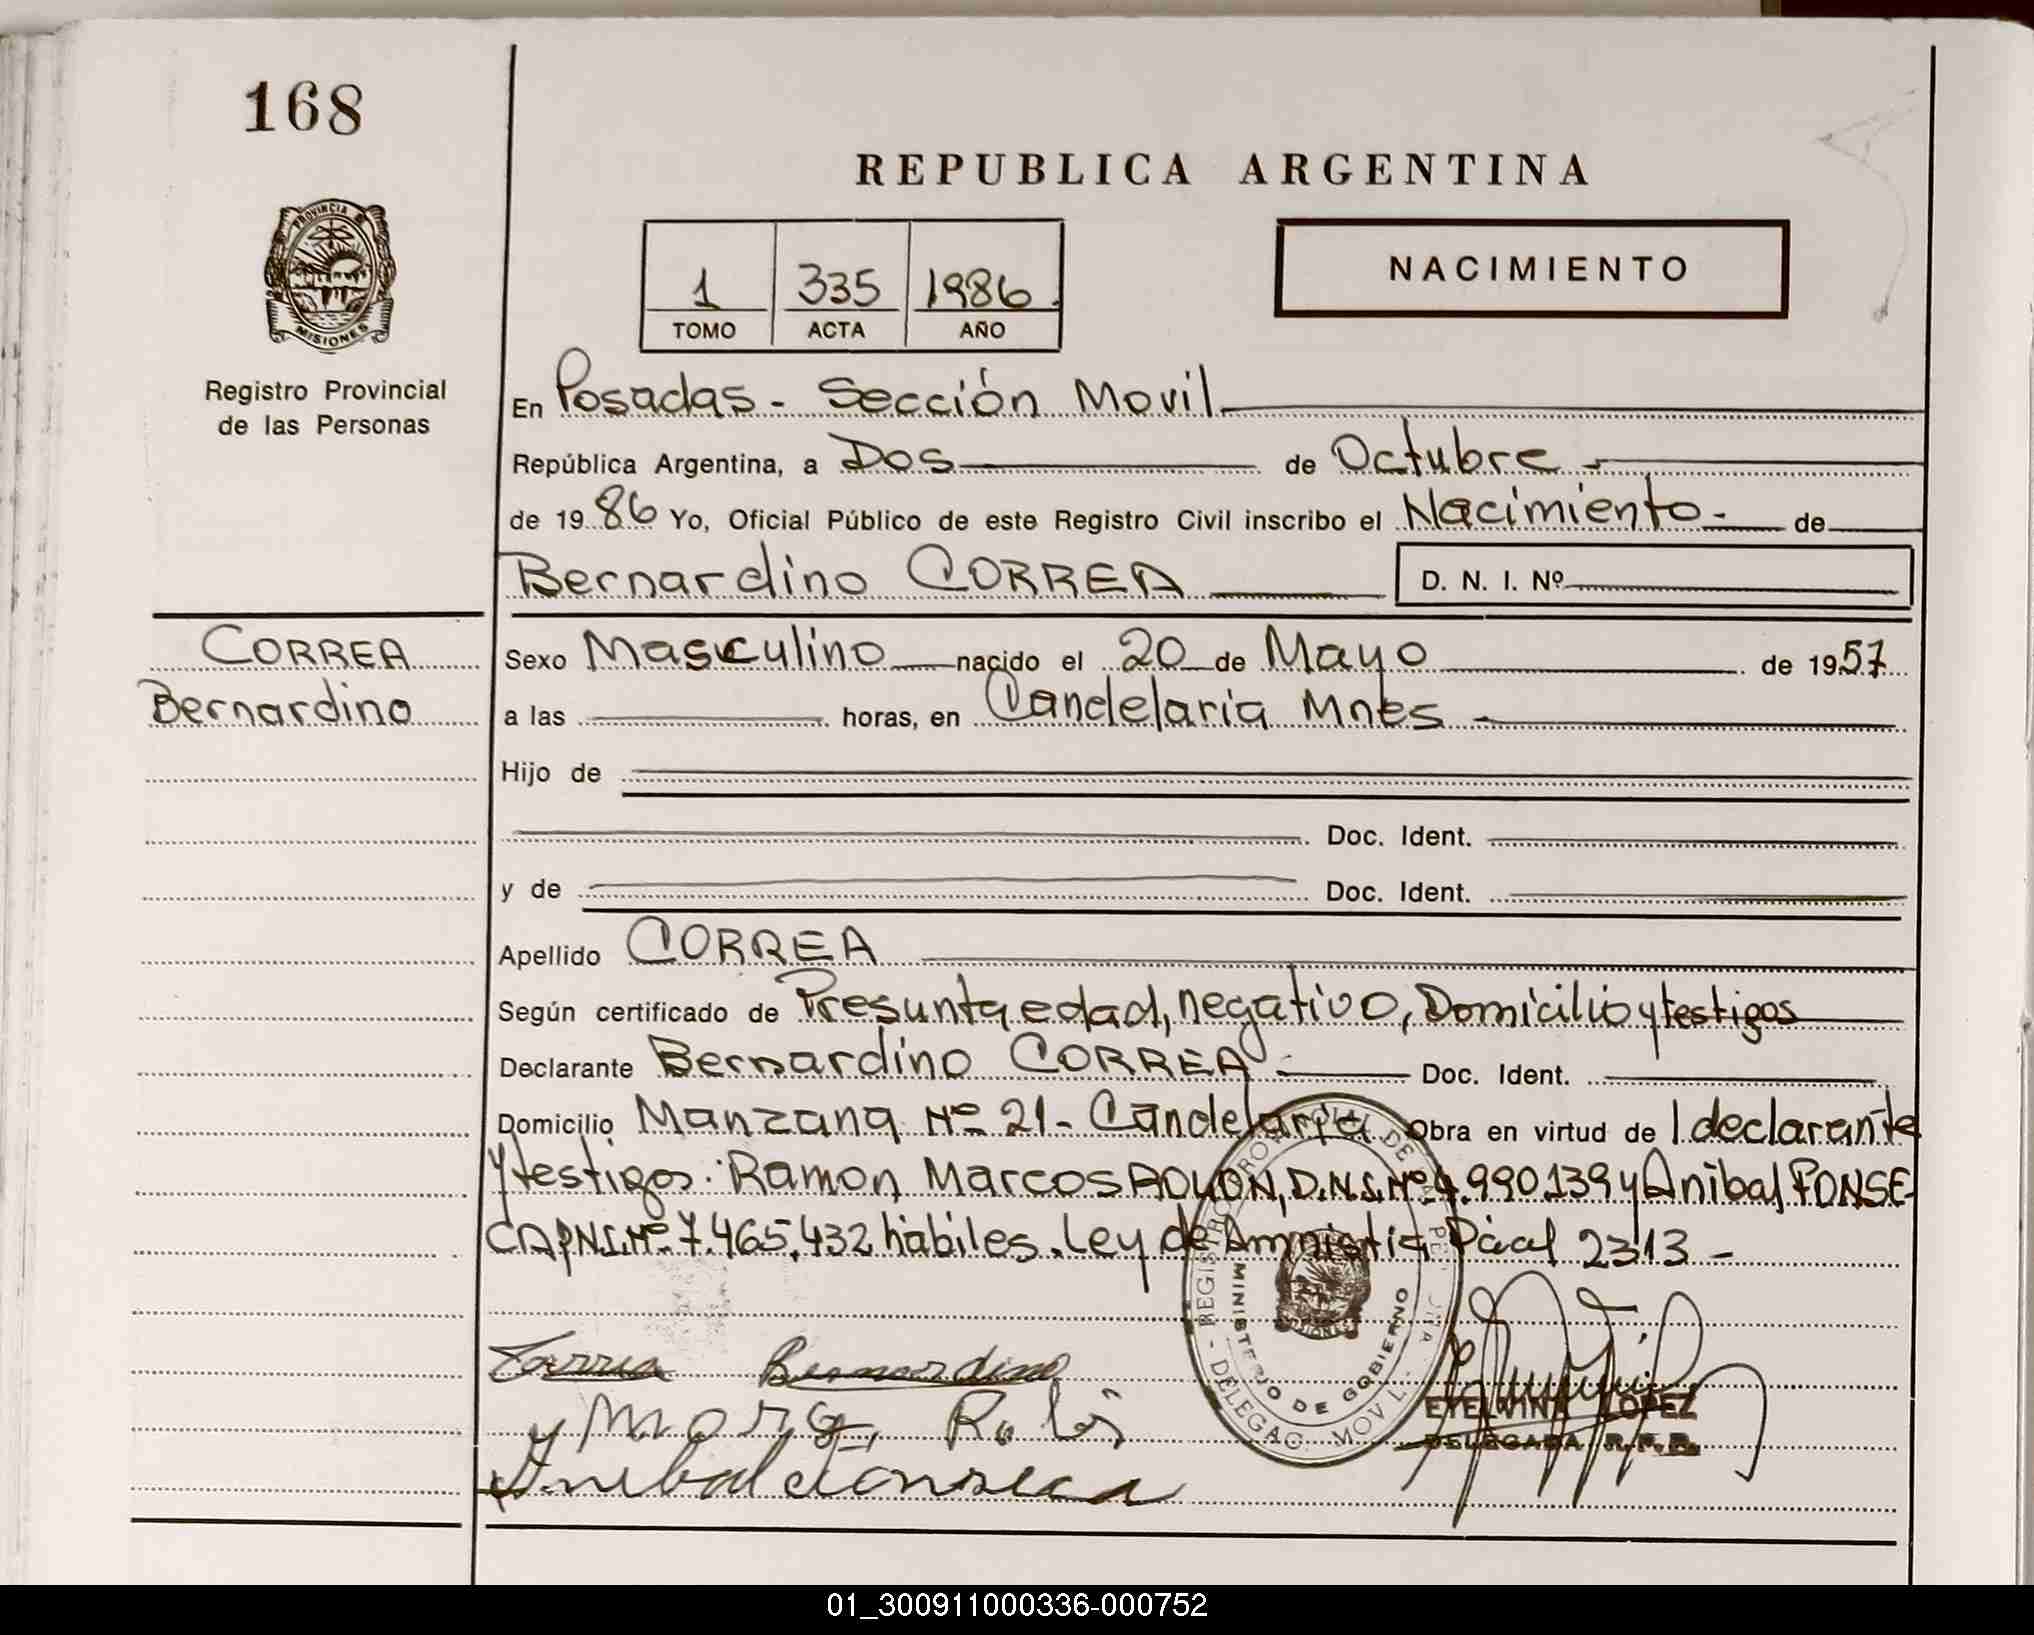 168
REPUBLICA ARGENTINA
NACIMIENTO
1 335 1986
TOMO ACTA AÑO
PROVINCIA DE
MISIONES
Registro Provincial
de las Personas
En Posadas - Sección Movil
República Argentina, a Dos de Octubre
de 1986 Yo, Oficial Público de este Registro Civil inscribo el Nacimiento de
Bernardino CORREA D. N. I. Nº
CORREA
Bernardino
Sexo Masculino nacido el 20 de Mayo de 1957
a las horas, en Candelaria Mnes
Hijo de
Doc. Ident.
y de Doc. Ident.
Apellido CORREA
Según certificado de Presunta edad, negativo, Domicilio y testigos
Declarante Bernardino CORREA Doc. Ident.
Domicilio Manzana Nº 21 - Candelaria Obra en virtud de l declarante
y testigos: Ramon Marcos D.N.I. Nº 4.990.139 y Anibal FONSE-
CA D.N.I. Nº 7.465.432 habiles. Ley de Amnistia Pcial 2313 -
Correa Bernardino
Anibal Fonseca
MINISTERIO DE GOBIERNO
DELEGAC. MOVIL
ETELVINA LOPEZ
DELEGADA R.P.P.
01_300911000336-000752